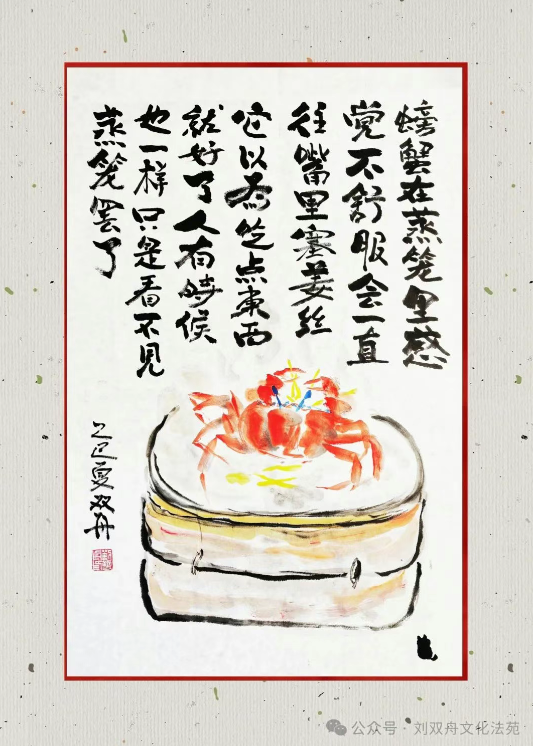 螃蟹在蒸笼里感
觉不舒服会一直
往嘴里塞姜丝
它以为吃点東西
就好了人有時候
也一样只是看不見
蒸笼罢了
乙巳夏双舟
公众号·刘双舟文化法苑